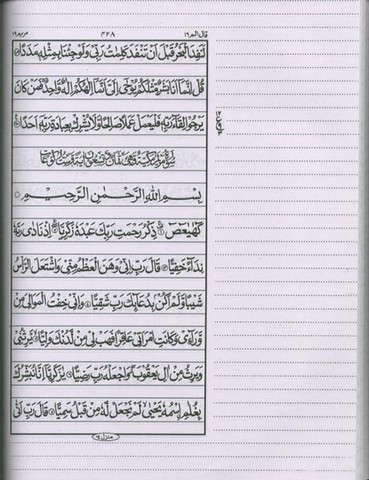 قال الم ١٦ ٤٢٨ مريم ١٩
لَنَفِدَ الْبَحْرُ قَبْلَ اَنْ تَنْفَدَ كَلِمٰتُ رَبِّیْ وَلَوْ جِئْنَا بِمِثْلِهٖ مَدَدًا
قُلْ اِنَّمَاۤ اَنَا بَشَرٌ مِّثْلُكُمْ یُوْحٰۤی اِلَیَّ اَنَّمَاۤ اِلٰهُكُمْ اِلٰهٌ وَّاحِدٌ فَمَنْ كَانَ
یَرْجُوْا لِقَآءَ رَبِّهٖ فَلْیَعْمَلْ عَمَلًا صَالِحًا وَّلَا یُشْرِكْ بِعِبَادَةِ رَبِّهٖۤ اَحَدًا
بِسْمِ اللّٰهِ الرَّحْمٰنِ الرَّحِیْمِ
كٓهٰیٰعٓصٓ ذِكْرُ رَحْمَتِ رَبِّكَ عَبْدَهٗ زَكَرِیَّا اِذْ نَادٰی رَبَّهٗ
نِدَآءً خَفِیًّا قَالَ رَبِّ اِنِّیْ وَهَنَ الْعَظْمُ مِنِّیْ وَاشْتَعَلَ الرَّاْسُ
شَیْبًا وَّلَمْ اَكُنْۢ بِدُعَآئِكَ رَبِّ شَقِیًّا وَاِنِّیْ خِفْتُ الْمَوَالِیَ مِنْ
وَّرَآءِیْ وَكَانَتِ امْرَاَتِیْ عَاقِرًا فَهَبْ لِیْ مِنْ لَّدُنْكَ وَلِیًّا یَّرِثُنِیْ
وَیَرِثُ مِنْ اٰلِ یَعْقُوْبَ وَاجْعَلْهُ رَبِّ رَضِیًّا یٰزَكَرِیَّاۤ اِنَّا نُبَشِّرُكَ
بِغُلٰمِ اسْمُهٗ یَحْیٰی لَمْ نَجْعَلْ لَّهٗ مِنْ قَبْلُ سَمِیًّا قَالَ رَبِّ اَنّٰی
منزل ٤